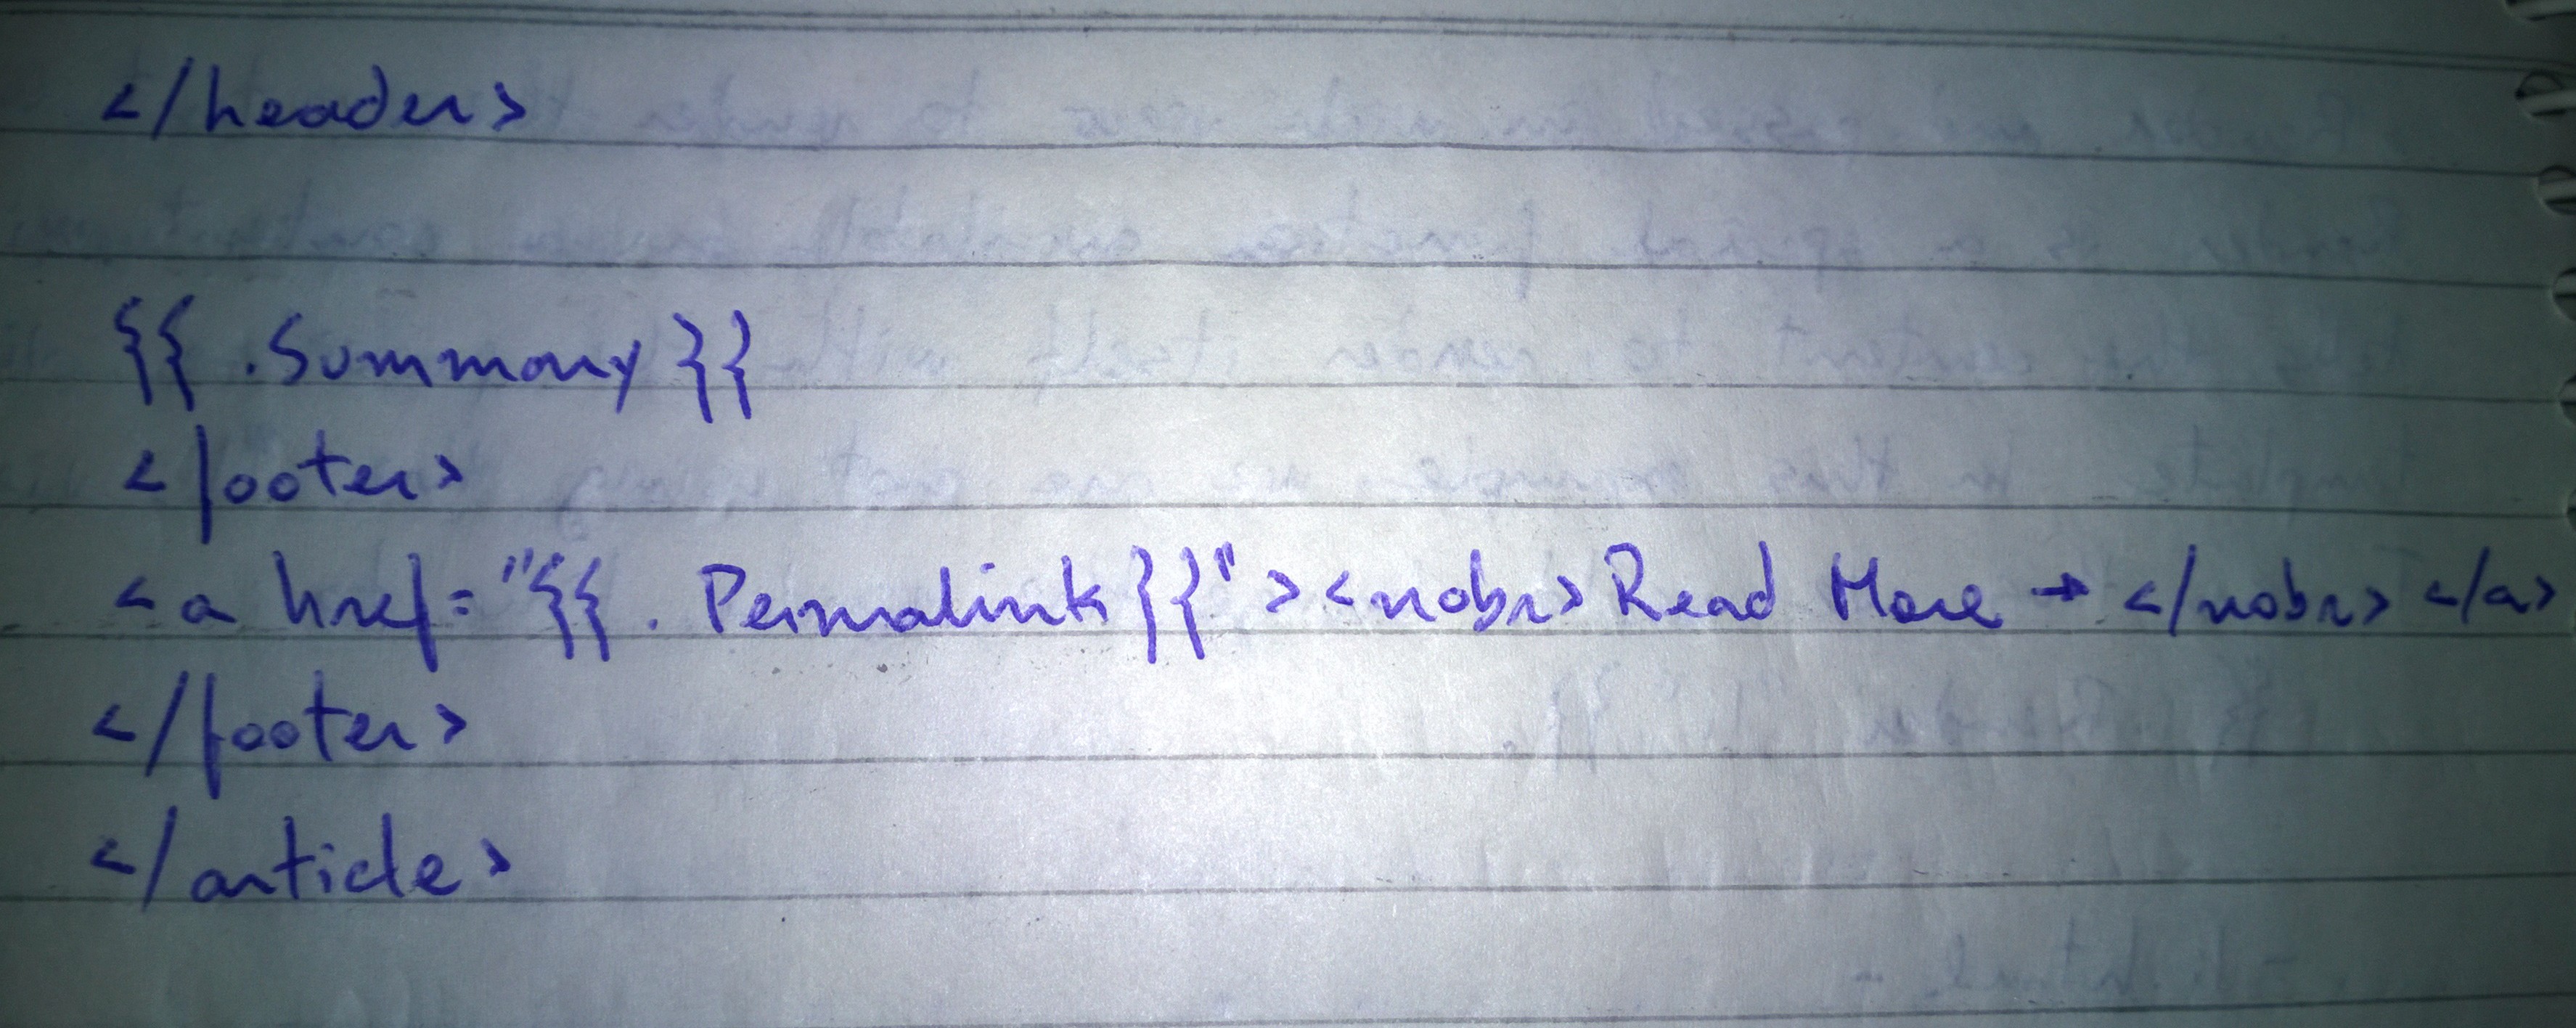 </header>
{{ .Summary }}
<footer>
<a href="{{ . Permalink }}"><nobr>Read More → </nobr> </a>
</footer>
</article>